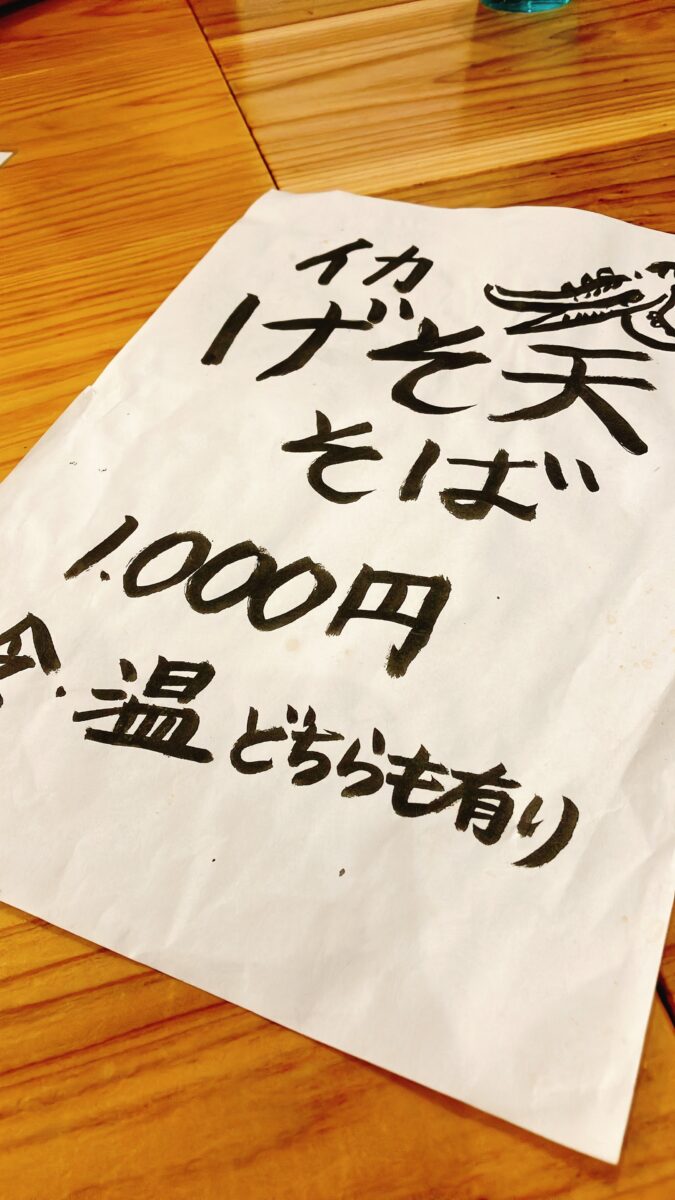 イカ
げそ天
そば
1.000円
冷・温 どちらも有り